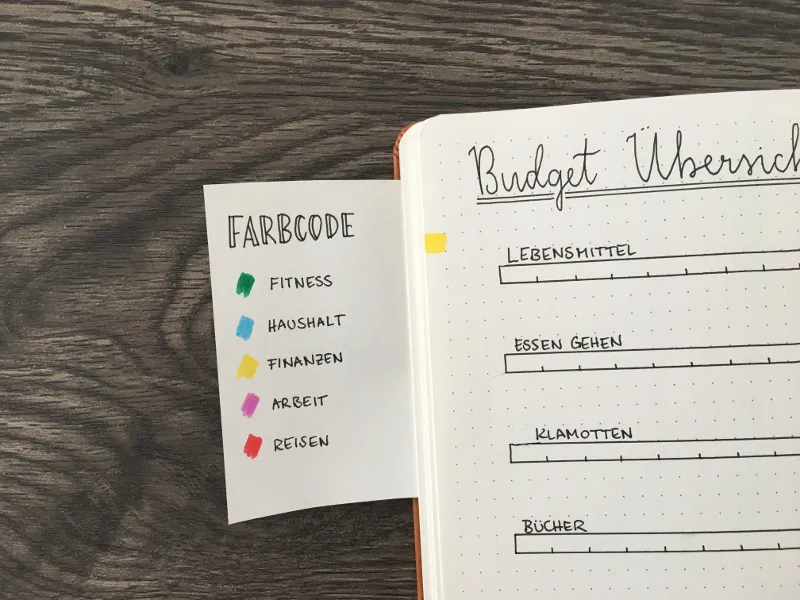 FARBCODE
FITNESS
HAUSHALT
FINANZEN
ARBEIT
REISEN
Budget Übersich
LEBENSMITTEL
ESSEN GEHEN
KLAMOTTEN
BÜCHER